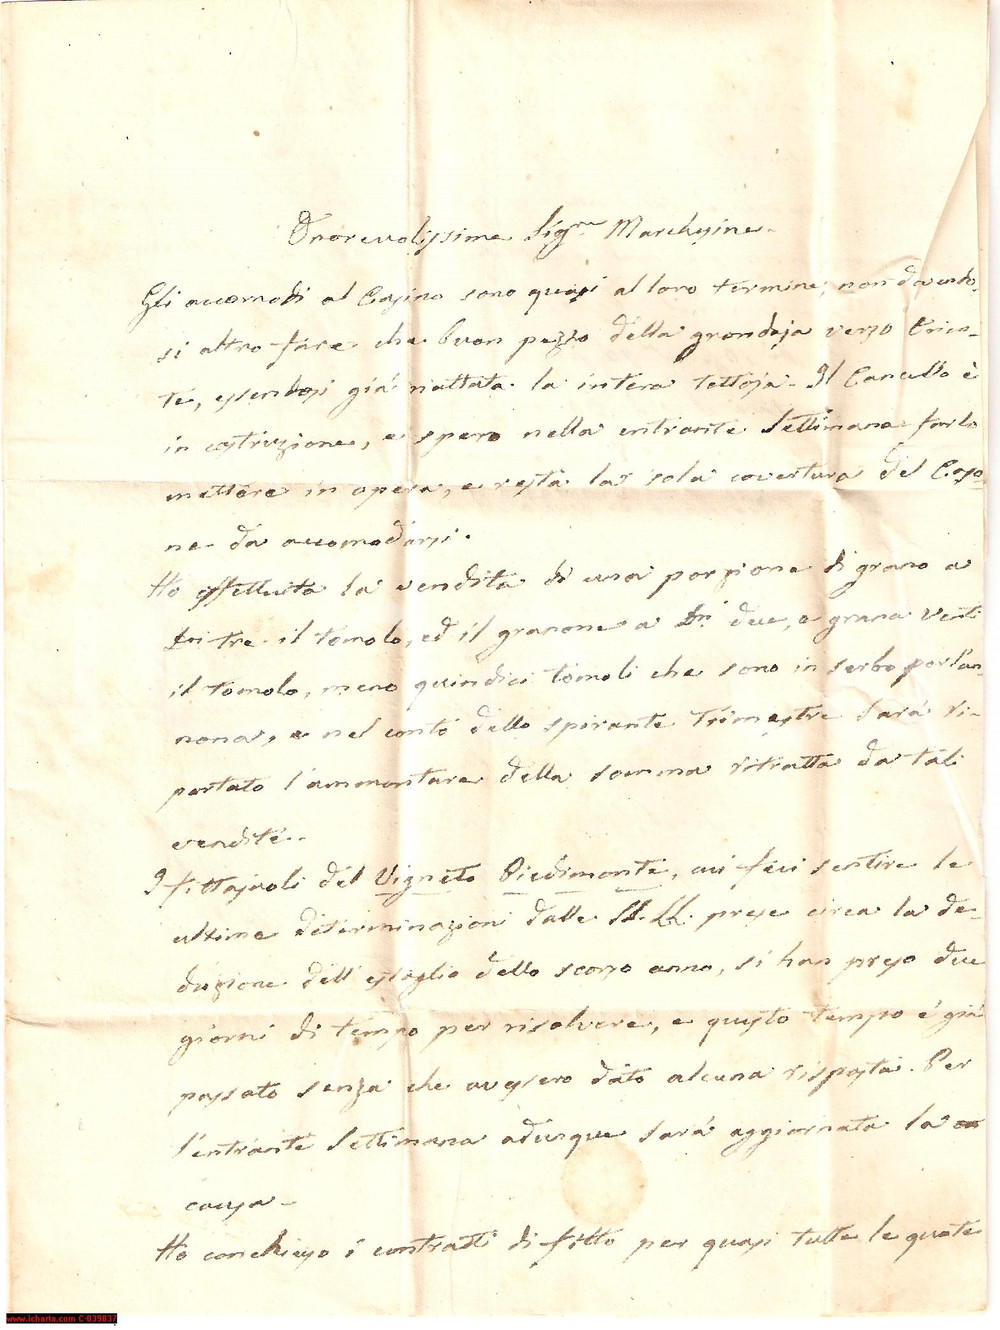 Onorevolissime Sig.re Marchesine.
Gli accomodi al Casino sono quasi al loro termine, non dovendo-
si altro fare che buon pezzo della grondaja verso Orien-
te, essendosi già nattata la intera tettoja. Il Cancello è
in costruzione, e spero nella entrante Settimana farlo
mettere in opera, e resta la sola covertura del Caso-
ne da accomodarsi.
Ho effettuita la vendita di una porzione di grano a
Dri tre il tomolo, ed il granone a Dri due, e grana venti
il tomolo, meno quindici tomoli che sono in serbo per l'an-
nona, e nel conto dello spirante Trimestre sarà ri-
portato l'ammontare della somma ritratta da tali
vendite.
I fittajuoli del Vigneto Piedimonte, cui feci sentire le
ultime determinazioni dalle LL. LL. prese circa la de-
duzione dell'estaglio dello scorso anno, si han preso due
giorni di tempo per risolvere, e questo tempo è già
passato senza che avessero dato alcuna risposta. Per
l'entrante Settimana adunque sarà aggiornata la
causa.
Ho conchiuso i contratti di fitto per quasi tutte le quote
www.icharta.com C-039837